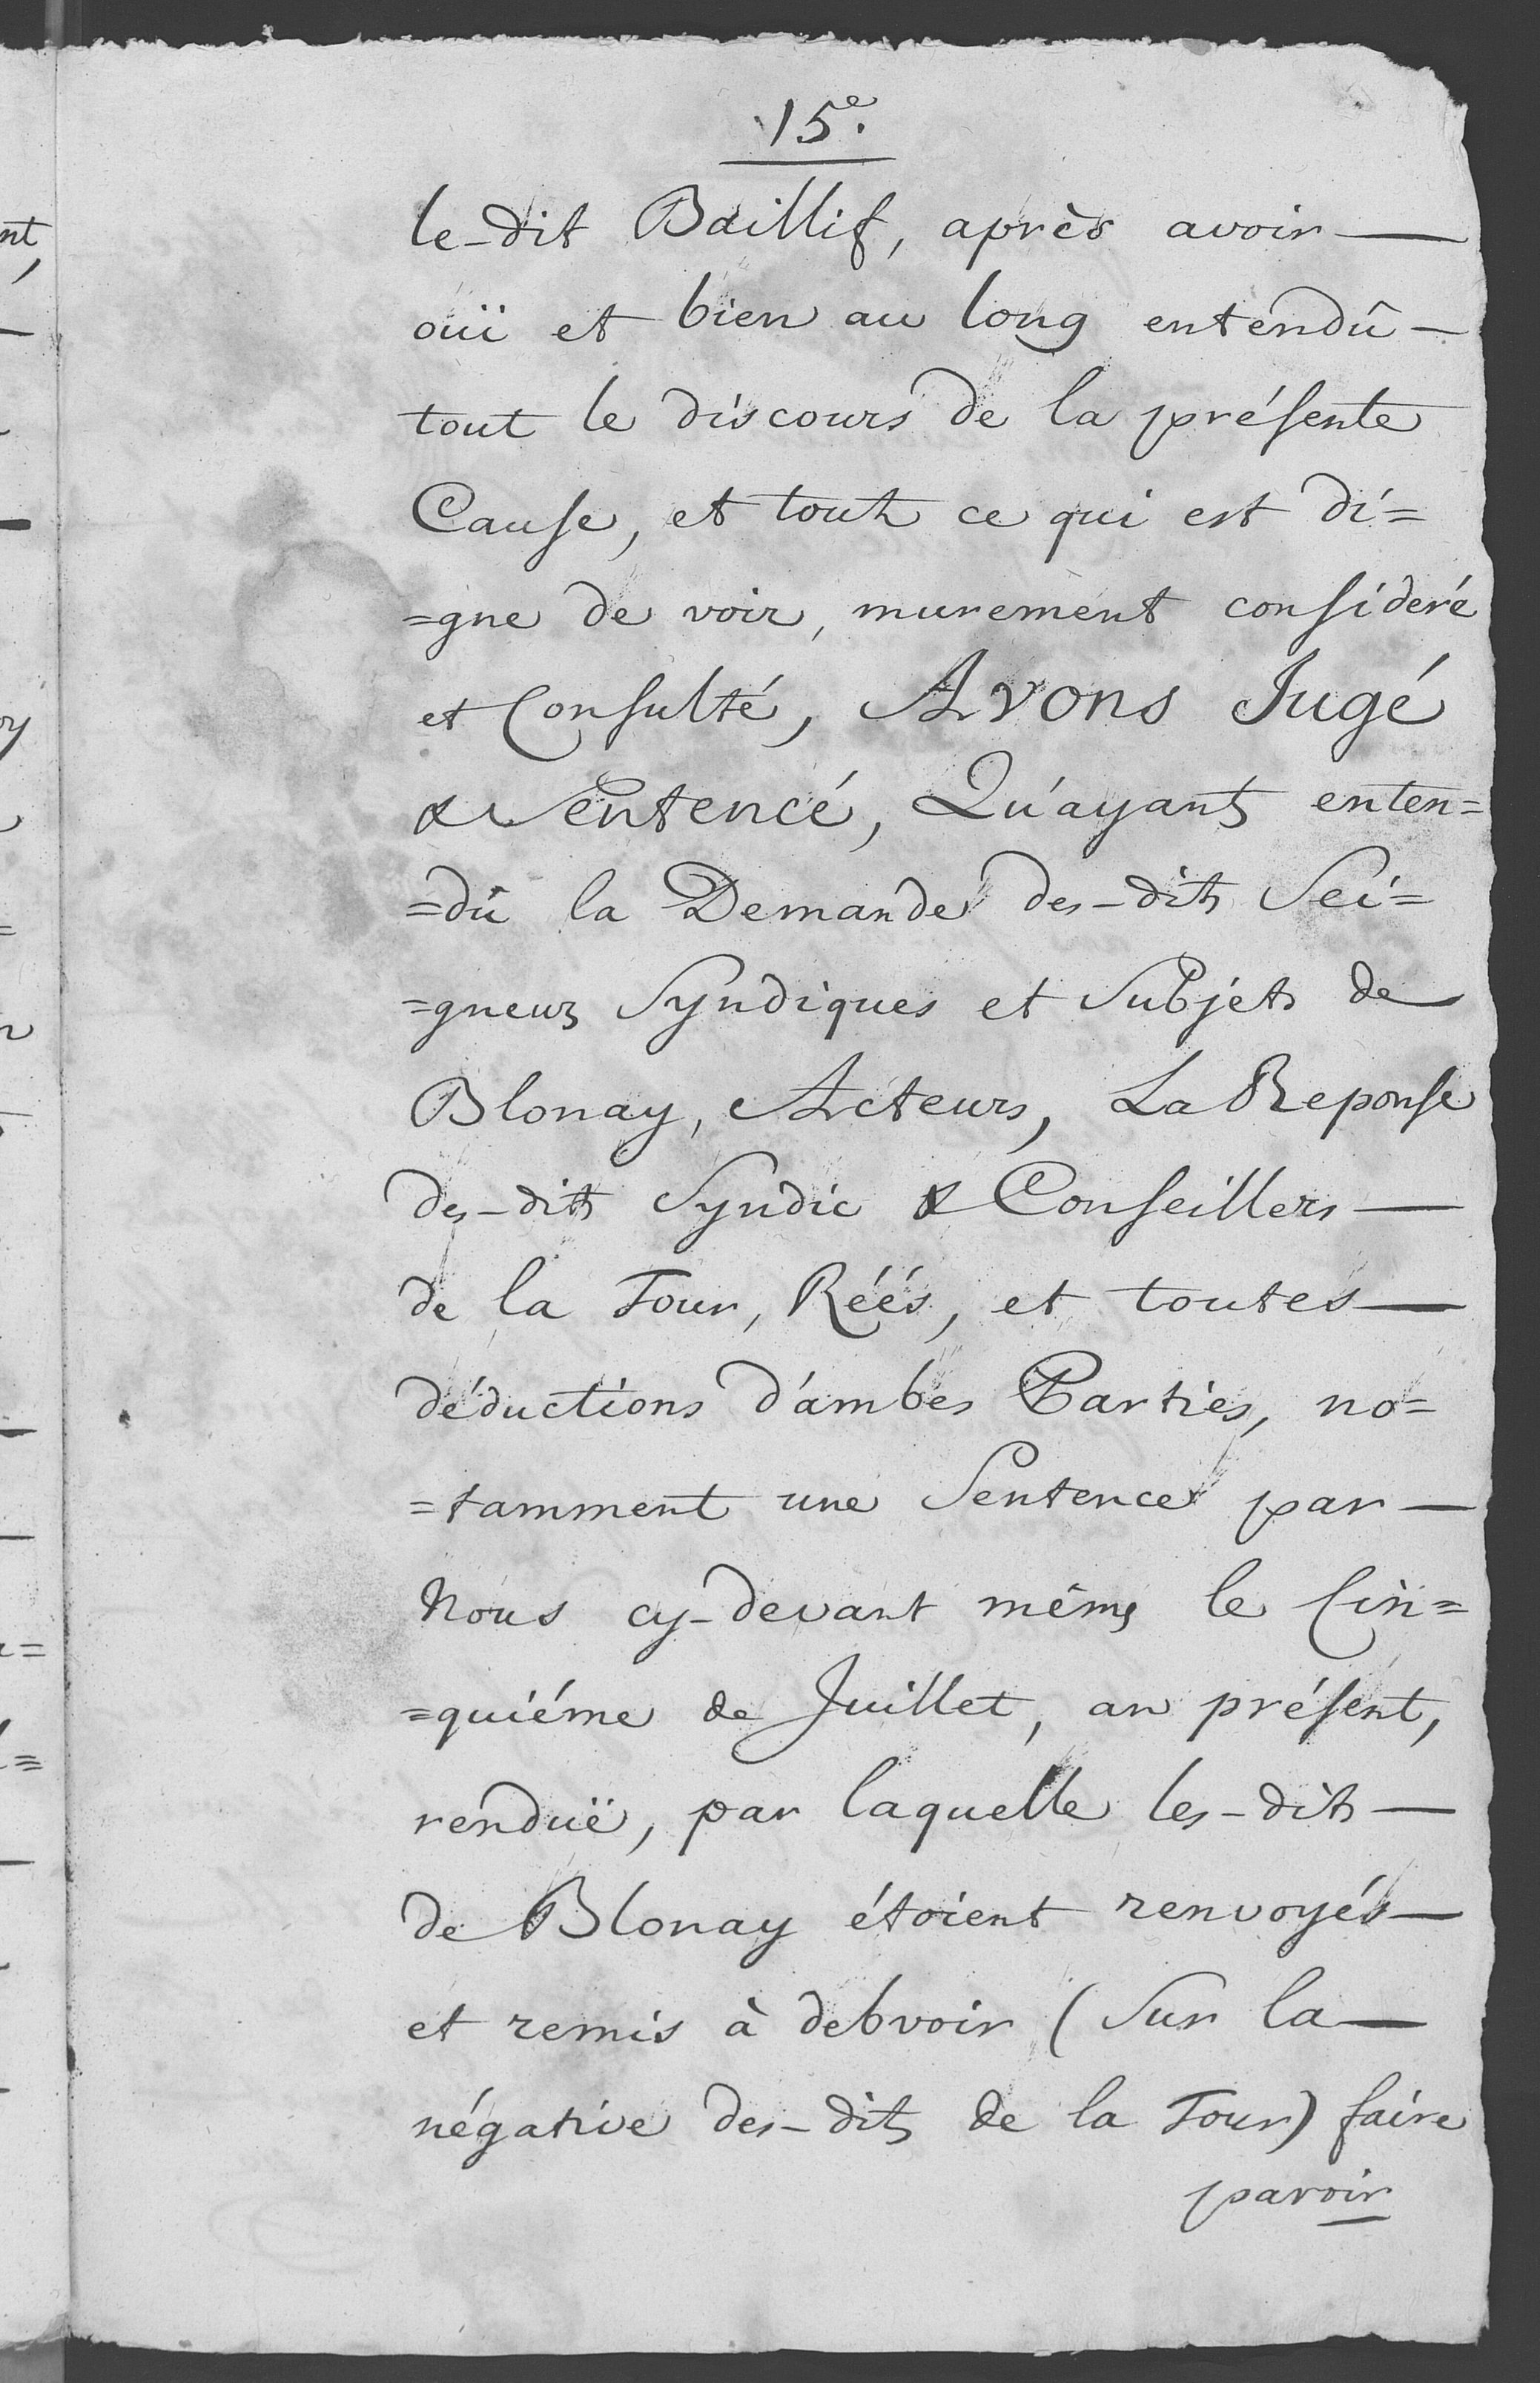 15.e
le-dit Baillif, après avoir —
ouï et bien au long entendû —
tout le discours de la présente
Cause, et tout ce qui est di=
=gne de voir, murement consideré
et Consulté, Avons Jugé
& Sentencé, Qu'ayant enten=
=dû la Demande des-dits Sei=
=gneur Syndiques et Subjets de
Blonay, Acteurs, La Reponse
des-dits Syndic & Conseillers —
de la Tour, Réés, et toutes —
déductions d'ambes Parties, no=
=tamment une Sentence par —
Nous cy-devant même le Cin=
=quiéme de Juillet, an présent,
renduë, par laquelle les-dits —
de Blonay étoient renvoyés —
et remis à debvoir (Sur la —
négative des-dits de la Tour) faire
paroir
nt,
oy